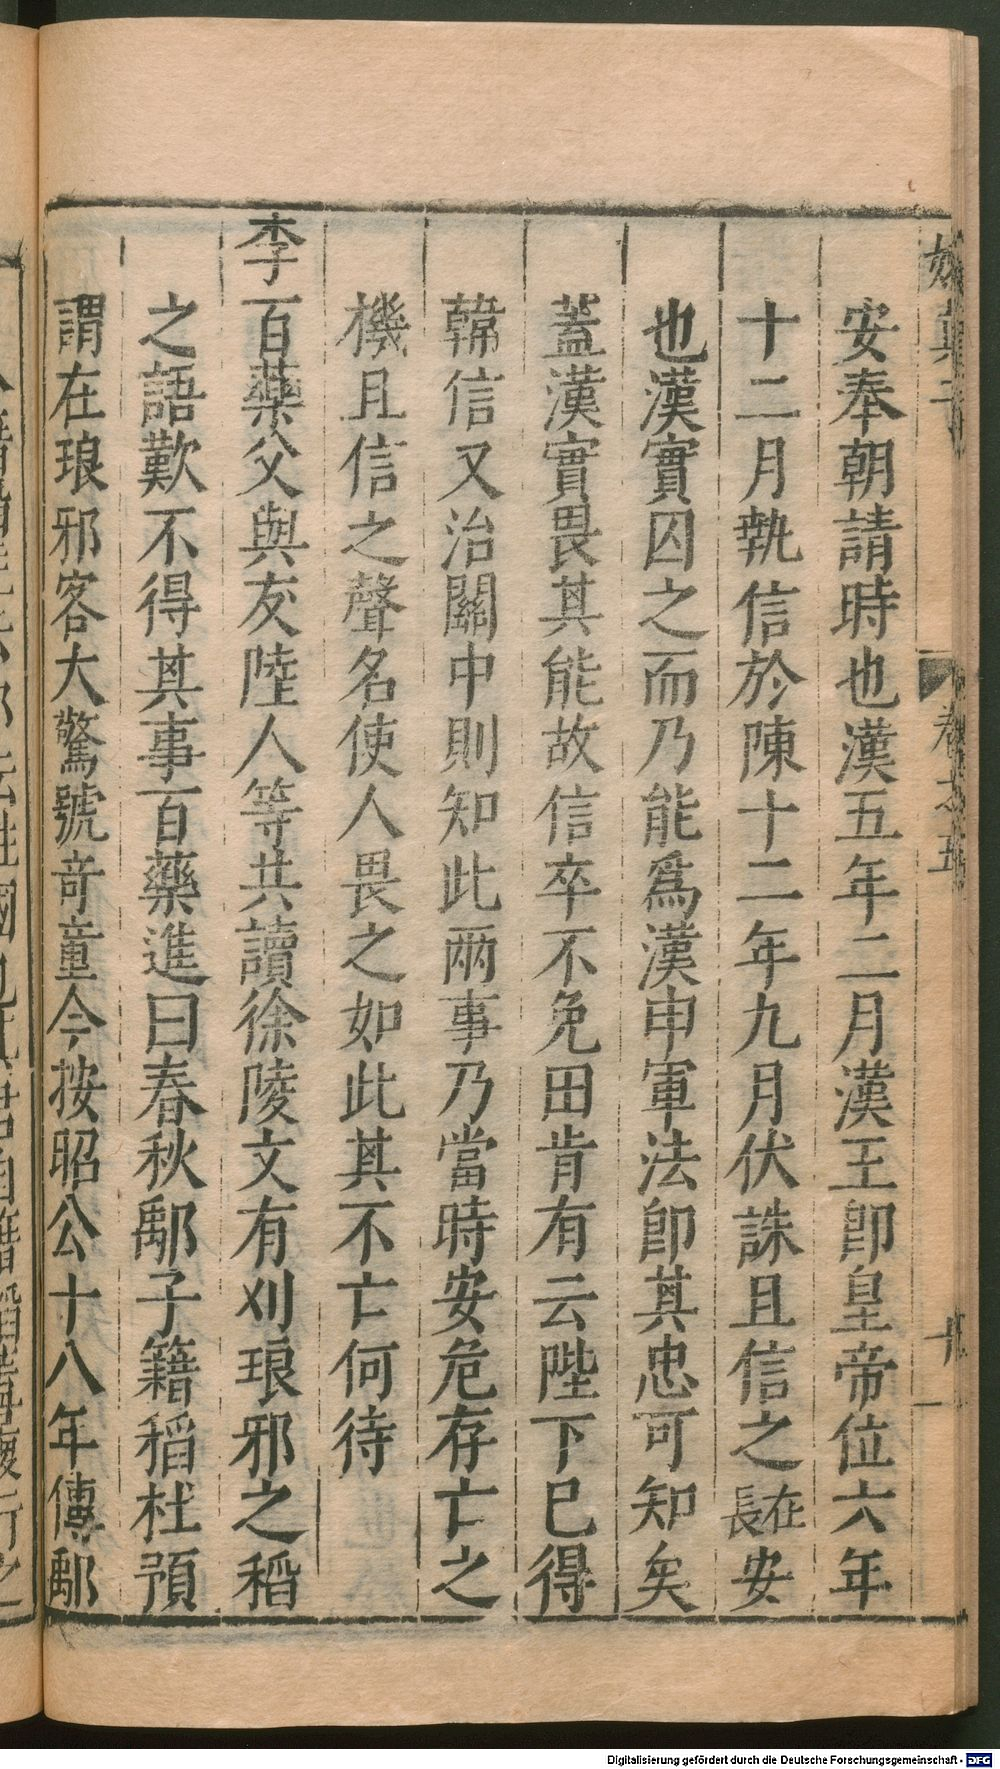 安奉朝請時也漢五年二月漢王卽皇帝位六年
十二月執信於陳十二年九月伏誅且信之在長安
也漢實囚之而乃能爲漢申軍法卽其忠可知矣
蓋漢實畏其能故信卒不免田肯有云陛下已得
韓信又治關中則知此兩事乃當時安危存亡之
機且信之聲名使人畏之如此其不亡何待
李百藥父與友陸人等共讀徐陵文有刈琅邪之稻
之語歎不得其事百藥進曰春秋鄅子籍稻杜預
謂在琅邪客大驚號奇童今按昭公十八年傳鄅
Digitalisierung gefördert durch die Deutsche Forschungsgemeinschaft - DFG